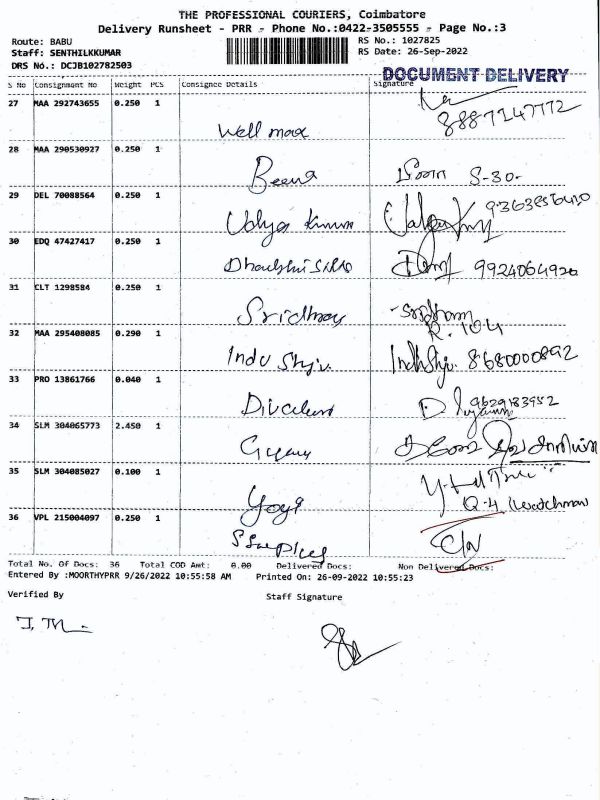 THE PROFESSIONAL COURIERS, Coimbatore
Delivery Runsheet - PRR - Phone No.:0422-3505555 - Page No.:3
Route: BABU
RS No.: 1027825
Staff: SENTHILKKUMAR
RS Date: 26-Sep-2022
DRS No.: DCJB102782503
DOCUMENT DELIVERY
S No Consignment No Weight PCS Consignee Details Signature
27 MAA 292743655 0.250 1
Well max 8887247772
28 MAA 290530927 0.250 1
Beena S-30-
29 DEL 70088564 0.250 1
Udhya Kumar
30 EDQ 47427417 0.250 1
9924064920
31 CLT 1298584 0.250 1
Sridhar
R. 104
32 MAA 295408085 0.290 1
Indu Shiv. 8680000892
33 PRO 13861766 0.040 1
9629183952
34 SLM 304065773 2.450 1
35 SLM 304085027 0.100 1
Yoga Q-4 (watchman
36 VPL 215004097 0.250 1
C/N
Total No. Of Docs: 36 Total COD Amt: 0.00 Delivered Docs: Non Delivered Docs:
Entered By :MOORTHYPRR 9/26/2022 10:55:58 AM Printed On: 26-09-2022 10:55:23
Verified By Staff Signature